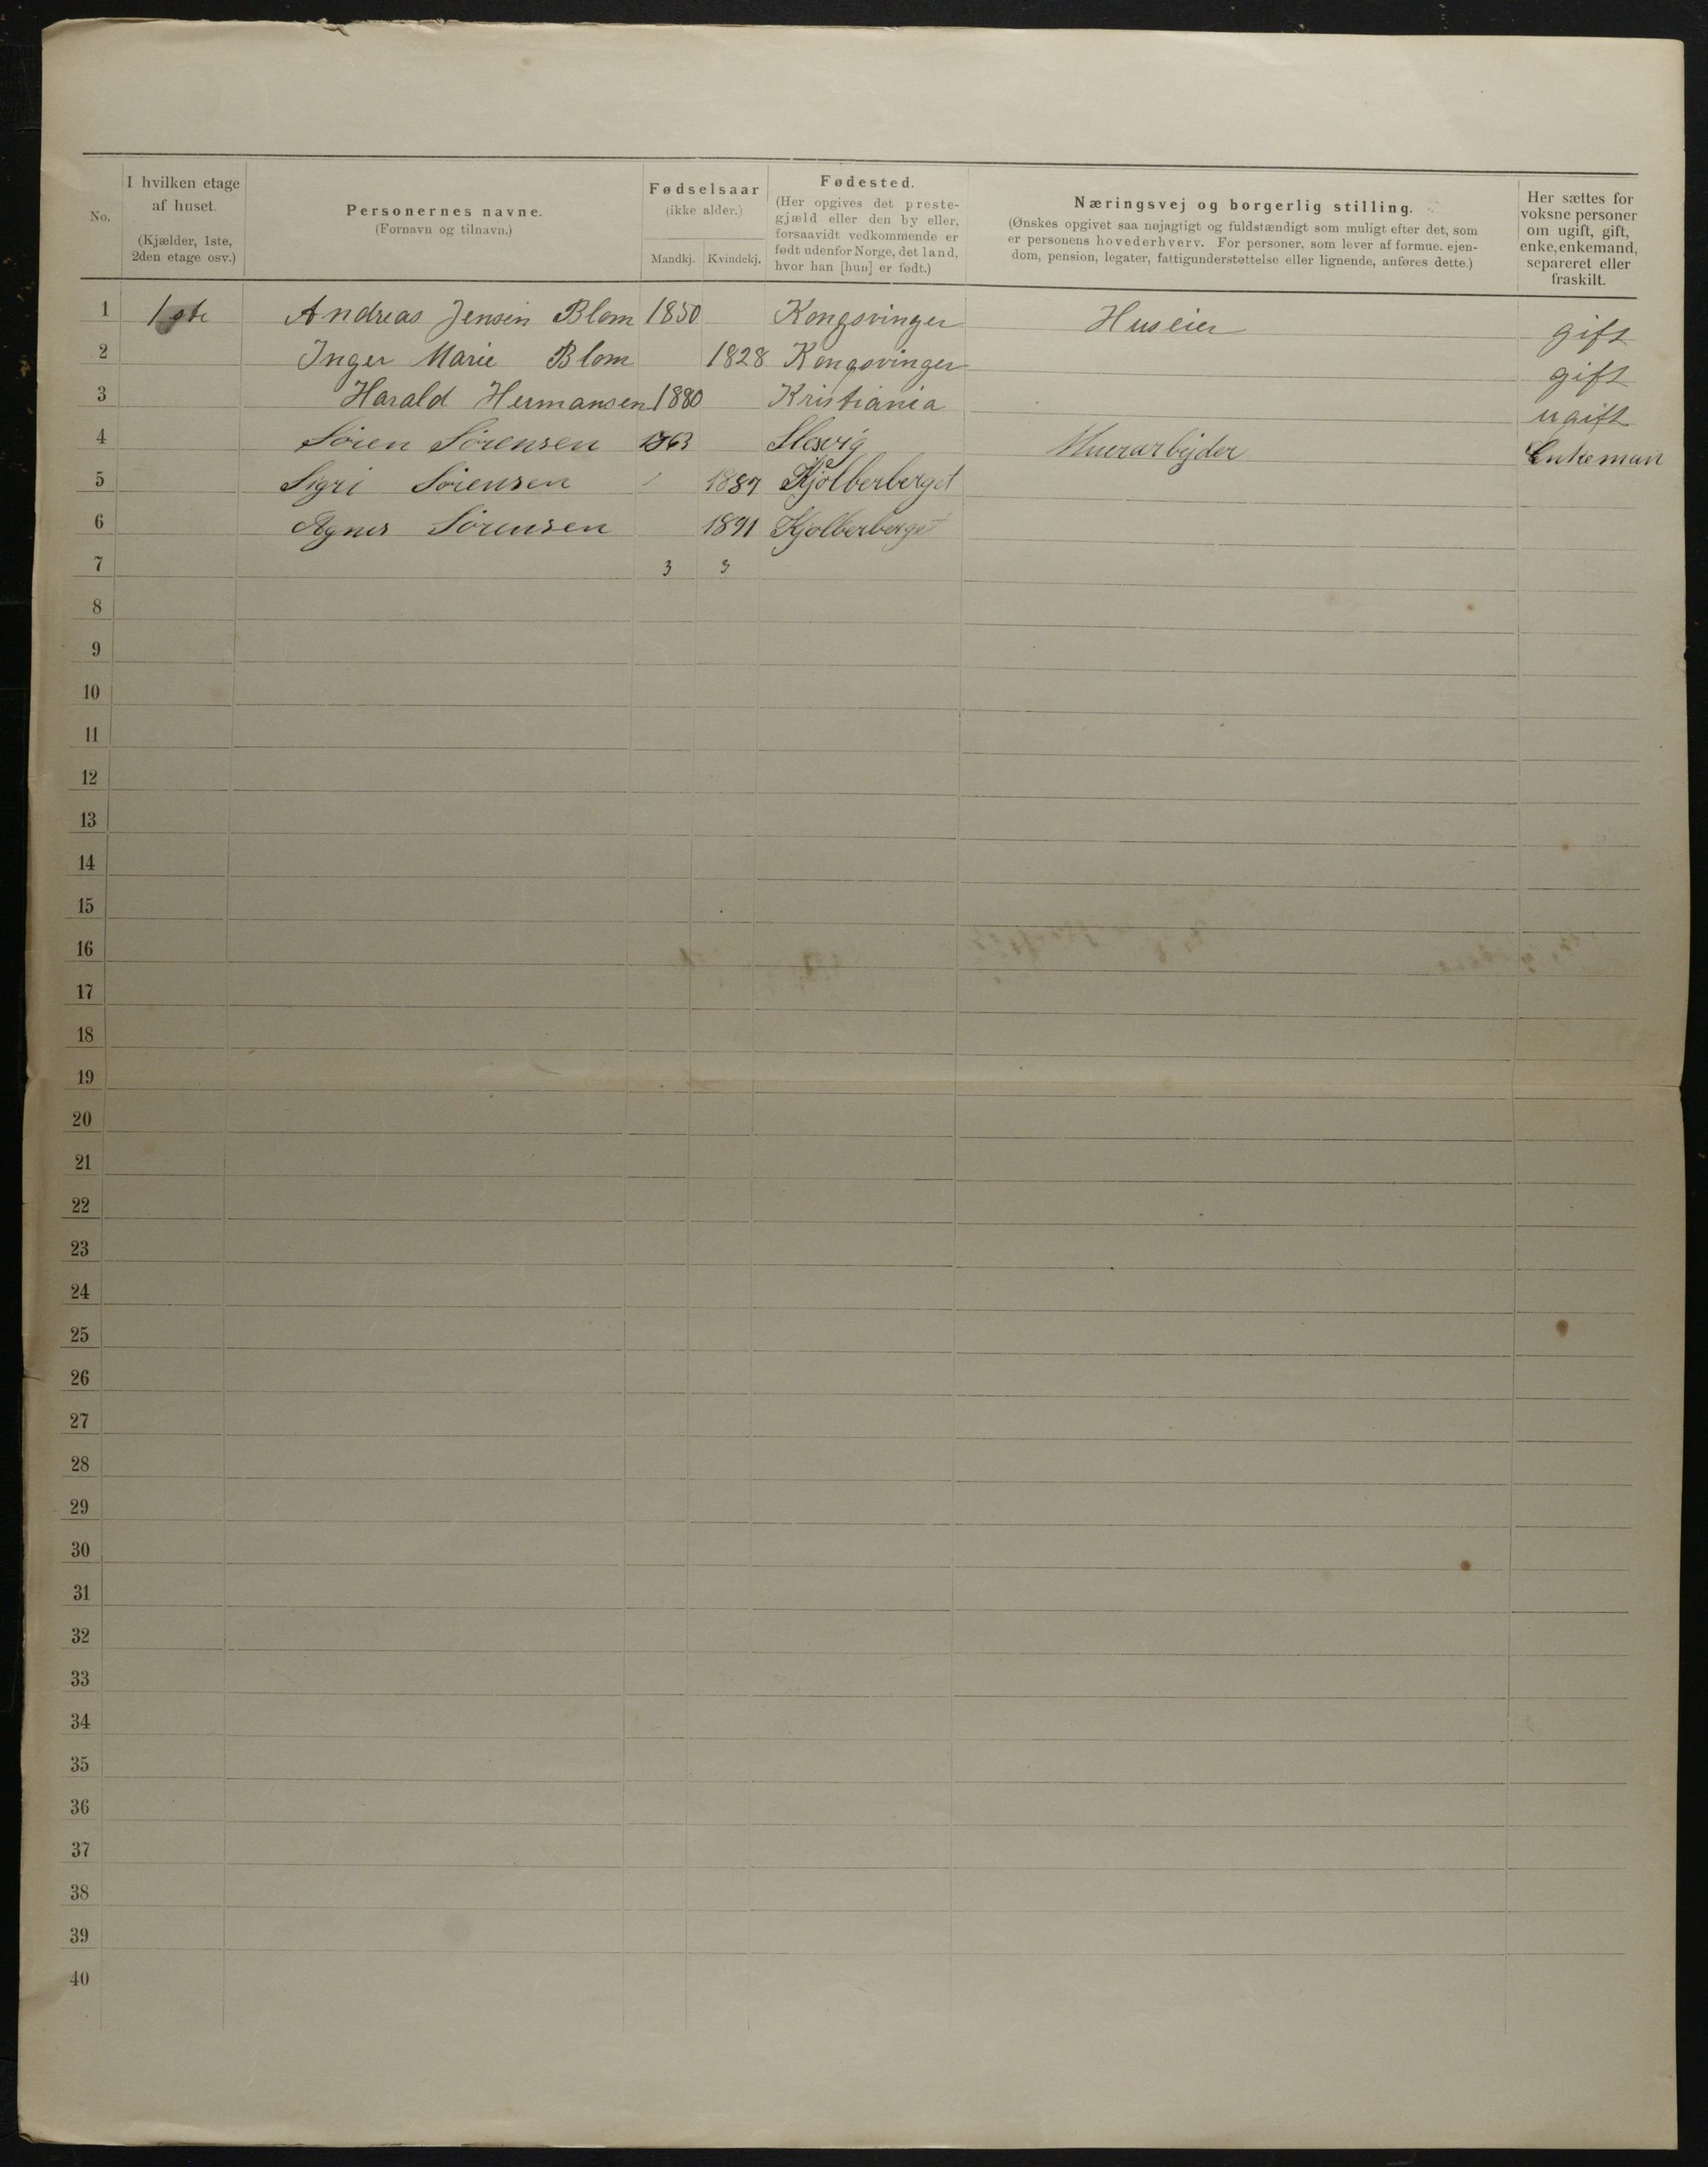 No.
I hvilken etage
af huset.
(Kjælder, 1ste,
2den etage osv.)
Personernes navne.
(Fornavn og tilnavn.)
Fødselsaar
(ikke alder.)
Mandkj. Kvindekj.
Fødested.
(Her opgives det preste-
gjæld eller den by eller,
forsaavidt vedkommende er
født udenfor Norge, det land,
hvor han [hun] er født.)
Næringsvej og borgerlig stilling.
(Ønskes opgivet saa nøjagtigt og fuldstændigt som muligt efter det, som
er personens hovederhverv. For personer, som lever af formue, ejen-
dom, pension, legater, fattigunderstøttelse eller lignende, anføres dette.)
Her sættes for
voksne personer
om ugift, gift,
enke, enkemand,
separeret eller
fraskilt.
1 1ste Andreas Jensen Blom 1850 Kongsvinger Huseier gift
2 Inger Marie Blom 1828 Kongsvinger gift
3 Harald Hermansen 1880 Kristiania ugift
4 Søren Sørensen 1863 Slesvig Murarbejder Enkeman
5 Sigri Sørensen 1887 Kjølberberget
6 Agnes Sørensen 1891 Kjølberberget
7 3 3
8
9
10
11
12
13
14
15
16
17
18
19
20
21
22
23
24
25
26
27
28
29
30
31
32
33
34
35
36
37
38
39
40